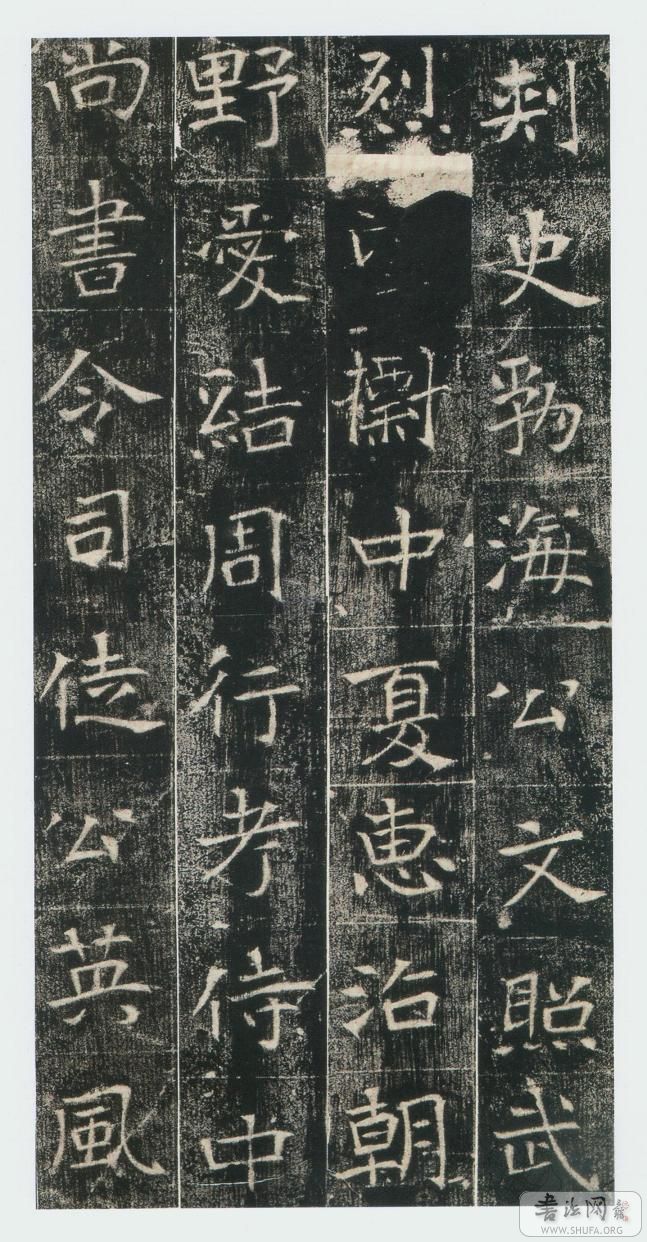 刺史勃海公文照武
烈中夏惠治朝
野愛結周行考侍中
尚書令司徒公英風
书法网
WWW.SHUFA.ORG